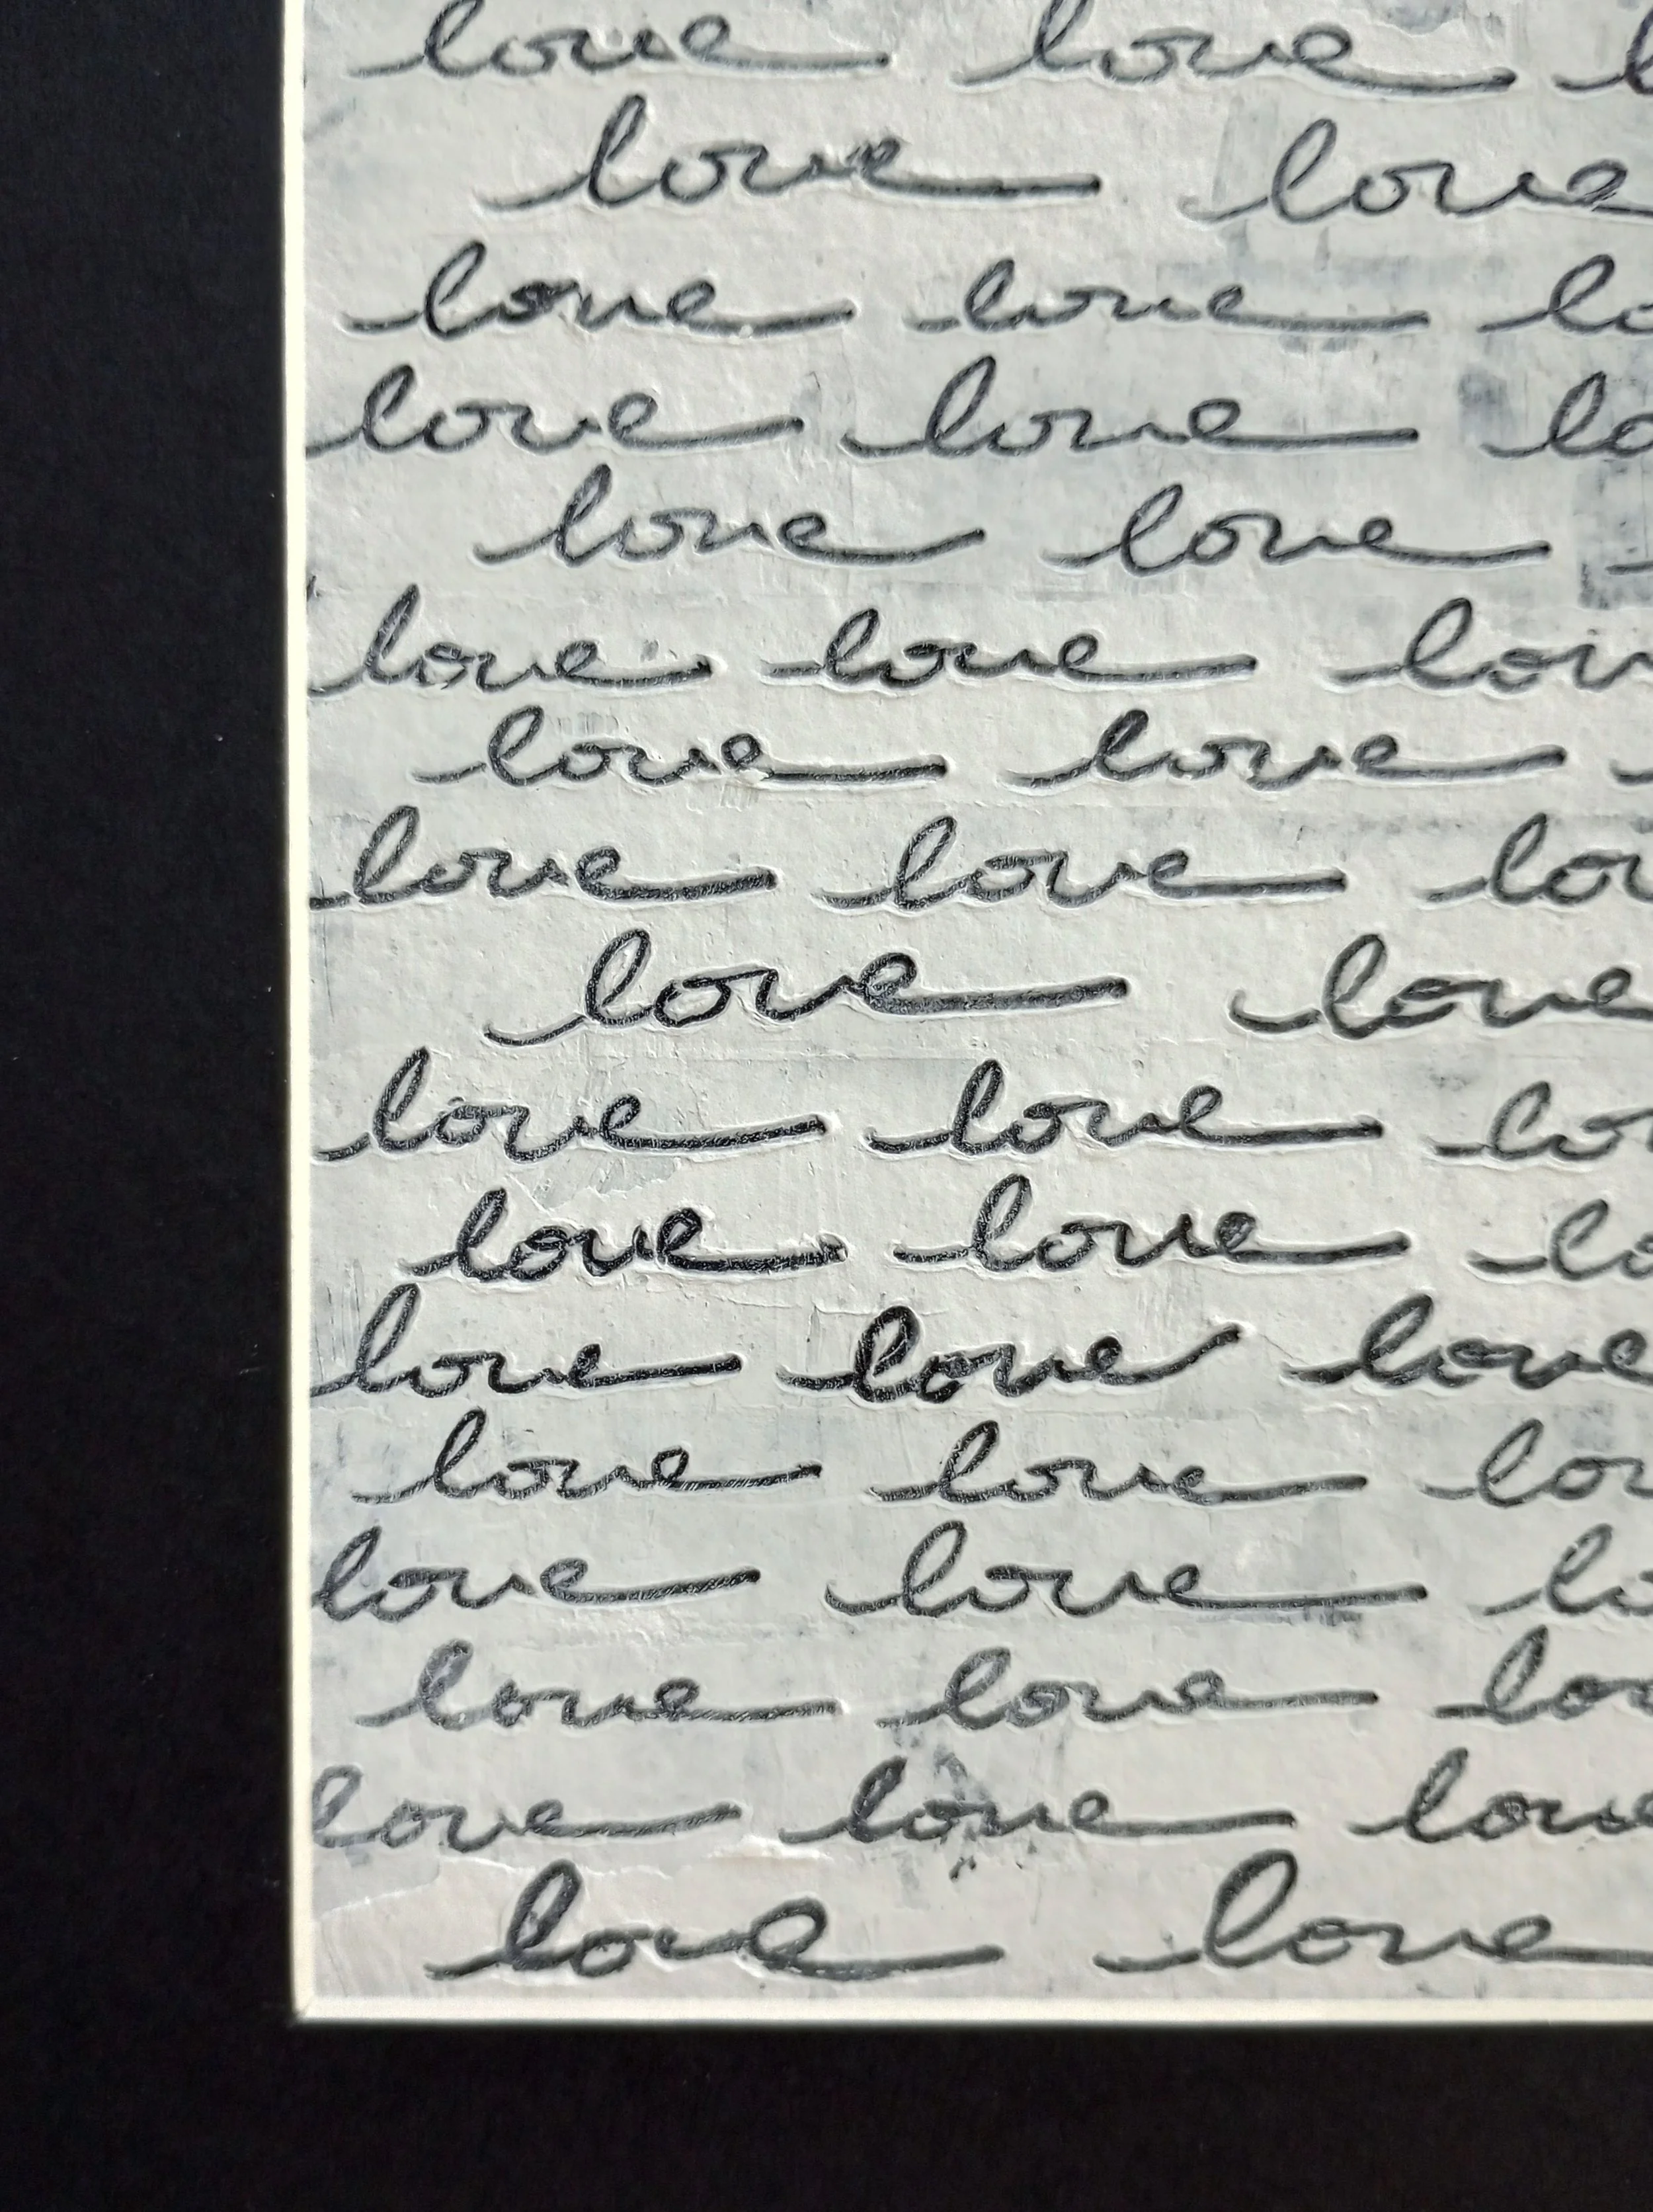 love love l
love love
love love lo
love love lo
love love
love love lov
love love
love love lov
love love
love love lov
love love lo
love love love
love love lov
love love lo
love love lov
love love love
love love